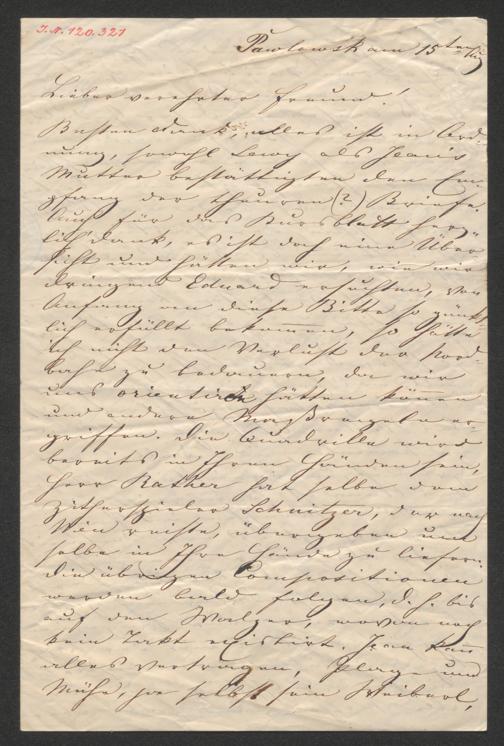 J.N. 120.321
Pawlowsk am 15ten
Lieber verehrter Freund!
Besten Dank, alles ist in Ord-
nung, sowohl Lewy als Jean's
Mutter bestättigten den Em-
pfang der theuren (2) Briefe.
Auch für das Kursblatt herz-
lich Dank, es ist doch eine Über-
sicht und hätten wir, wie wir
dringend Eduard ersuchten, von
Anfang an diese Bitte so pünkt-
lich erfüllt bekommen, so hätte
ich nicht den Verlust der Nord-
bahn zu bedauern, da wir
uns orientiren hätten können
und andere Maßregeln er-
griffen. Die Quadrille wird
bereits in Ihren Händen sein,
Herr Rather hat selbe dem
Zitherspieler Schnitzer, der nach
Wien reiste, übergeben um
selbe in Ihre Hände zu liefern.
Die übrigen Compositionen
werden bald folgen, d. h. bis
auf den Walzer, wovon noch
kein Takt existirt. Jean kan
alles vertragen, Plage und
Mühe, ja selbst sein Weiberl,